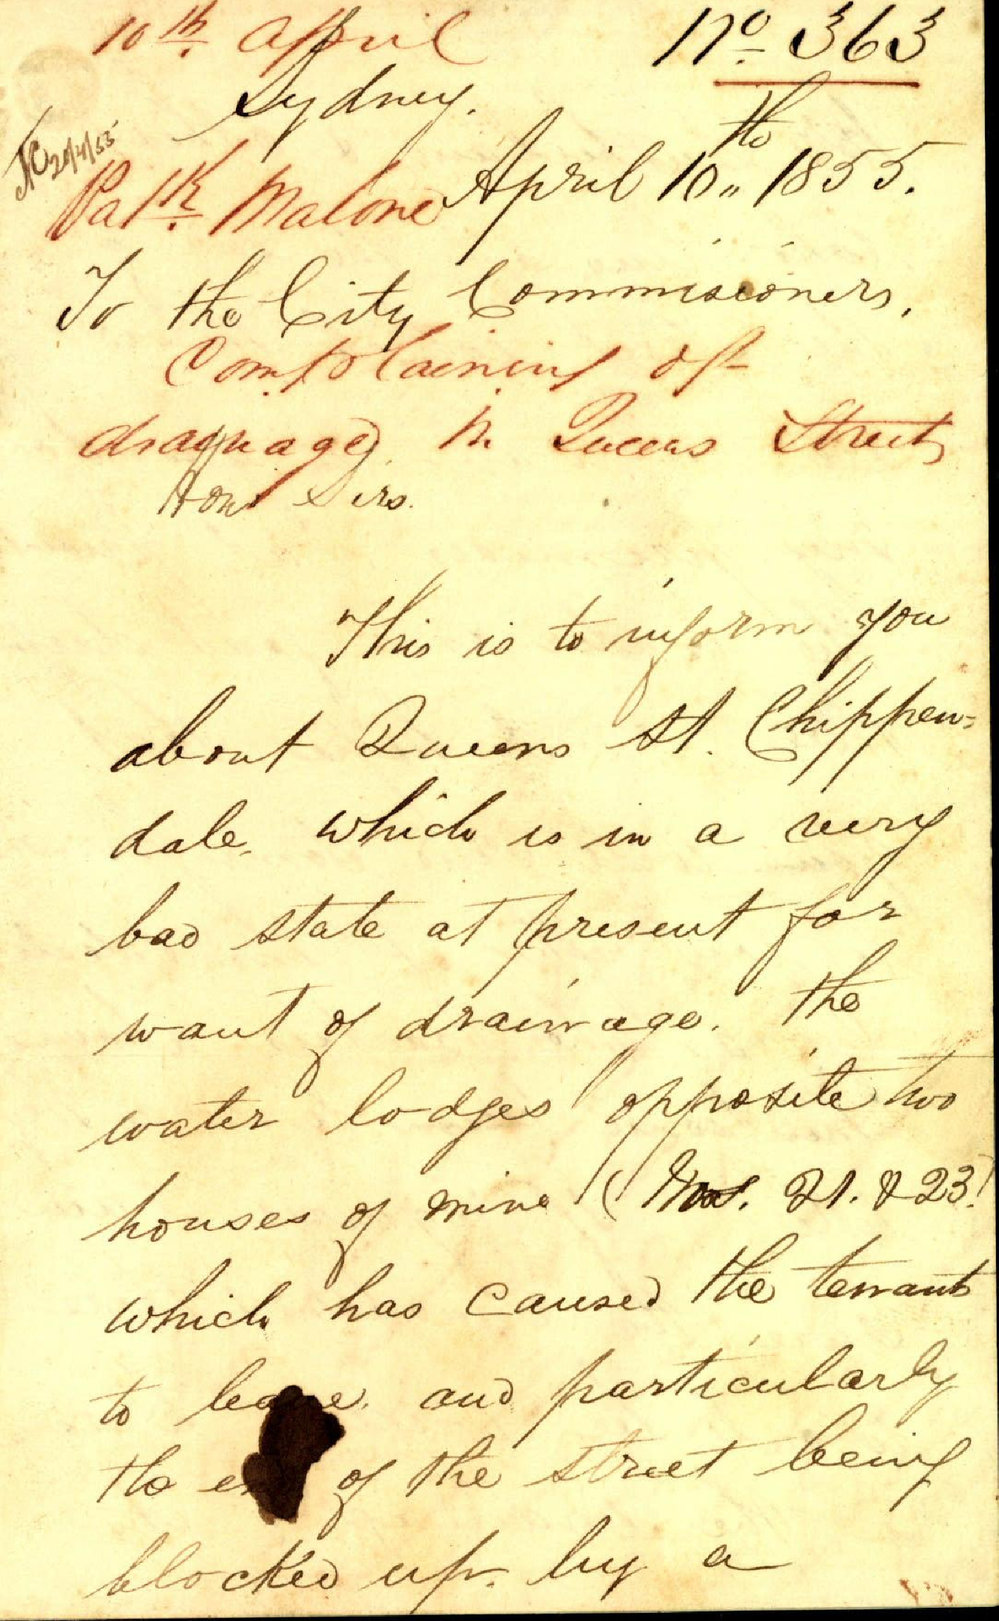 10th. April
No. 363
Sydney.
20/4/55
April 10th 1855.
Patk. Malone
To the City Commissioners,
Complaining of
drainage in Queens Street
Hon Sirs.
This is to inform you
about Queens St. Chippen=
dale, which is in a very
bad state at present for
want of drainage. The
water lodges opposite two
houses of mine (Nos. 21. & 23)
which has caused the tenants
to leave. and particularly
the end of the street being
blocked up. by a